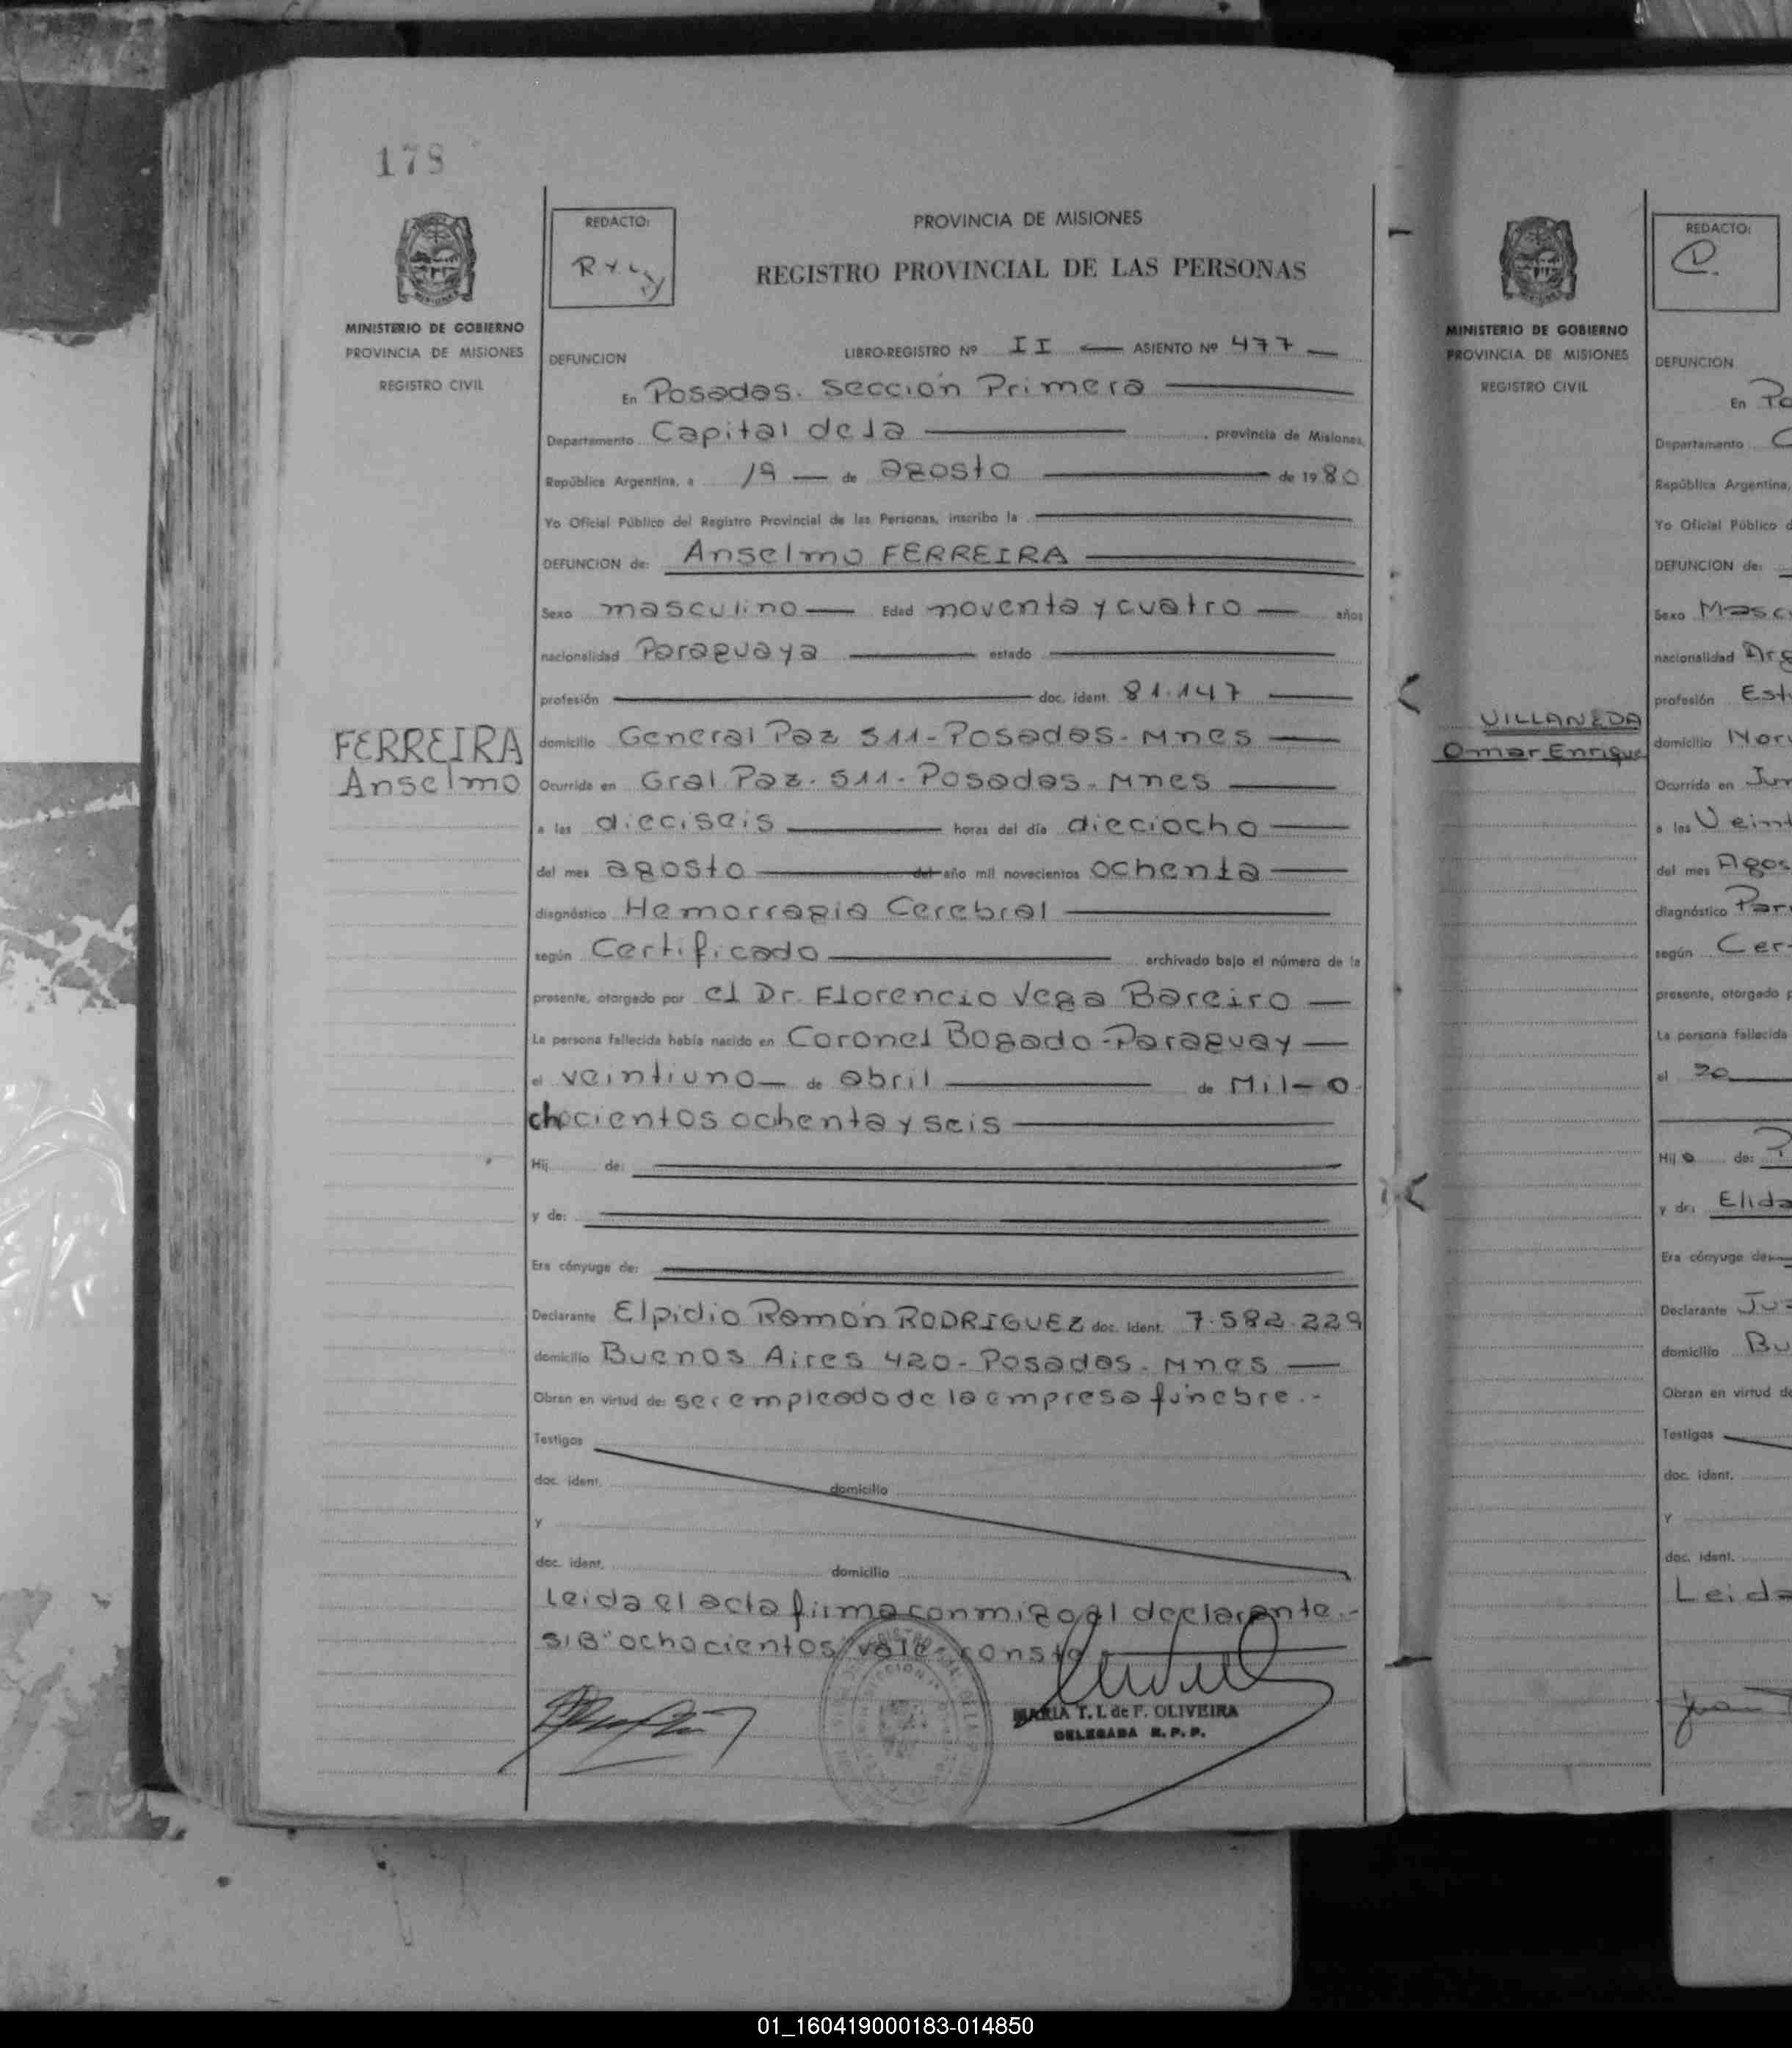 178
MINISTERIO DE GOBIERNO
PROVINCIA DE MISIONES
REGISTRO CIVIL
FERREIRA
Anselmo
REDACTO:
PROVINCIA DE MISIONES
REGISTRO PROVINCIAL DE LAS PERSONAS
DEFUNCION LIBRO-REGISTRO Nº II ASIENTO Nº 477
En Posadas. Sección Primera
Departamento Capital de la , provincia de Misiones,
República Argentina, a 19 de agosto de 1980
Yo Oficial Público del Registro Provincial de las Personas, inscribo la
DEFUNCION de: Anselmo FERREIRA
Sexo masculino Edad noventa y cuatro años
nacionalidad Paraguaya estado
profesión doc. ident. 81.147
domicilio General Paz 511-Posadas-Mnes
Ocurrida en Gral Paz. 511-Posadas-Mnes
a las dieciseis horas del día dieciocho
del mes agosto del año mil novecientos ochenta
diagnóstico Hemorragia Cerebral
según Certificado archivado bajo el número de la
presente, otorgado por el Dr. Florencio Vega Bareiro
La persona fallecida había nacido en Coronel Bogado-Paraguay
el veintiuno de abril de Mil-o
chocientos ochenta y seis
Hij de:
y de:
Era cónyuge de:
Declarante Elpidio Ramón RODRIGUEZ doc. ident. 7.582.229
domicilio Buenos Aires 420-Posadas-Mnes
Obran en virtud de: ser empleado de la empresa fúnebre.-
Testigos
doc. ident. domicilio
y
doc. ident. domicilio
Leida el acta firma conmigo el declarante.-
S/B "ochocientos" vale consta
MARIA T. I. de F. OLIVEIRA
DELEGADA R. P. P.
MINISTERIO DE GOBIERNO
PROVINCIA DE MISIONES
REGISTRO CIVIL
VILLANEDA
Omar Enrique
REDACTO:
DEFUNCION
En Po
Departamento C
República Argentina,
Yo Oficial Público d
DEFUNCION de:
Sexo Mascu
nacionalidad Arg
profesión Estu
domicilio
Ocurrida en Jun
a las Veint
del mes Agos
diagnóstico Par
según Cer
presente, otorgado p
La persona fallecida
el 20
Hijo de: P
y de: Elida
Era cónyuge de:
Declarante
domicilio Bu
Obran en virtud de
Testigos
doc. ident.
Y
doc. ident.
Leida
01_160419000183-014850